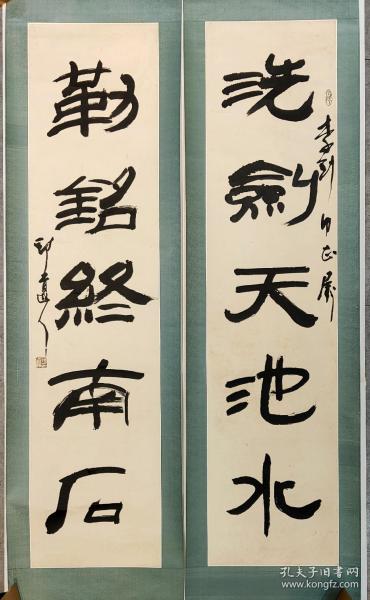 洗劍天池水
李剑
勒銘終南石
孔夫子旧书网
www.kongfz.com